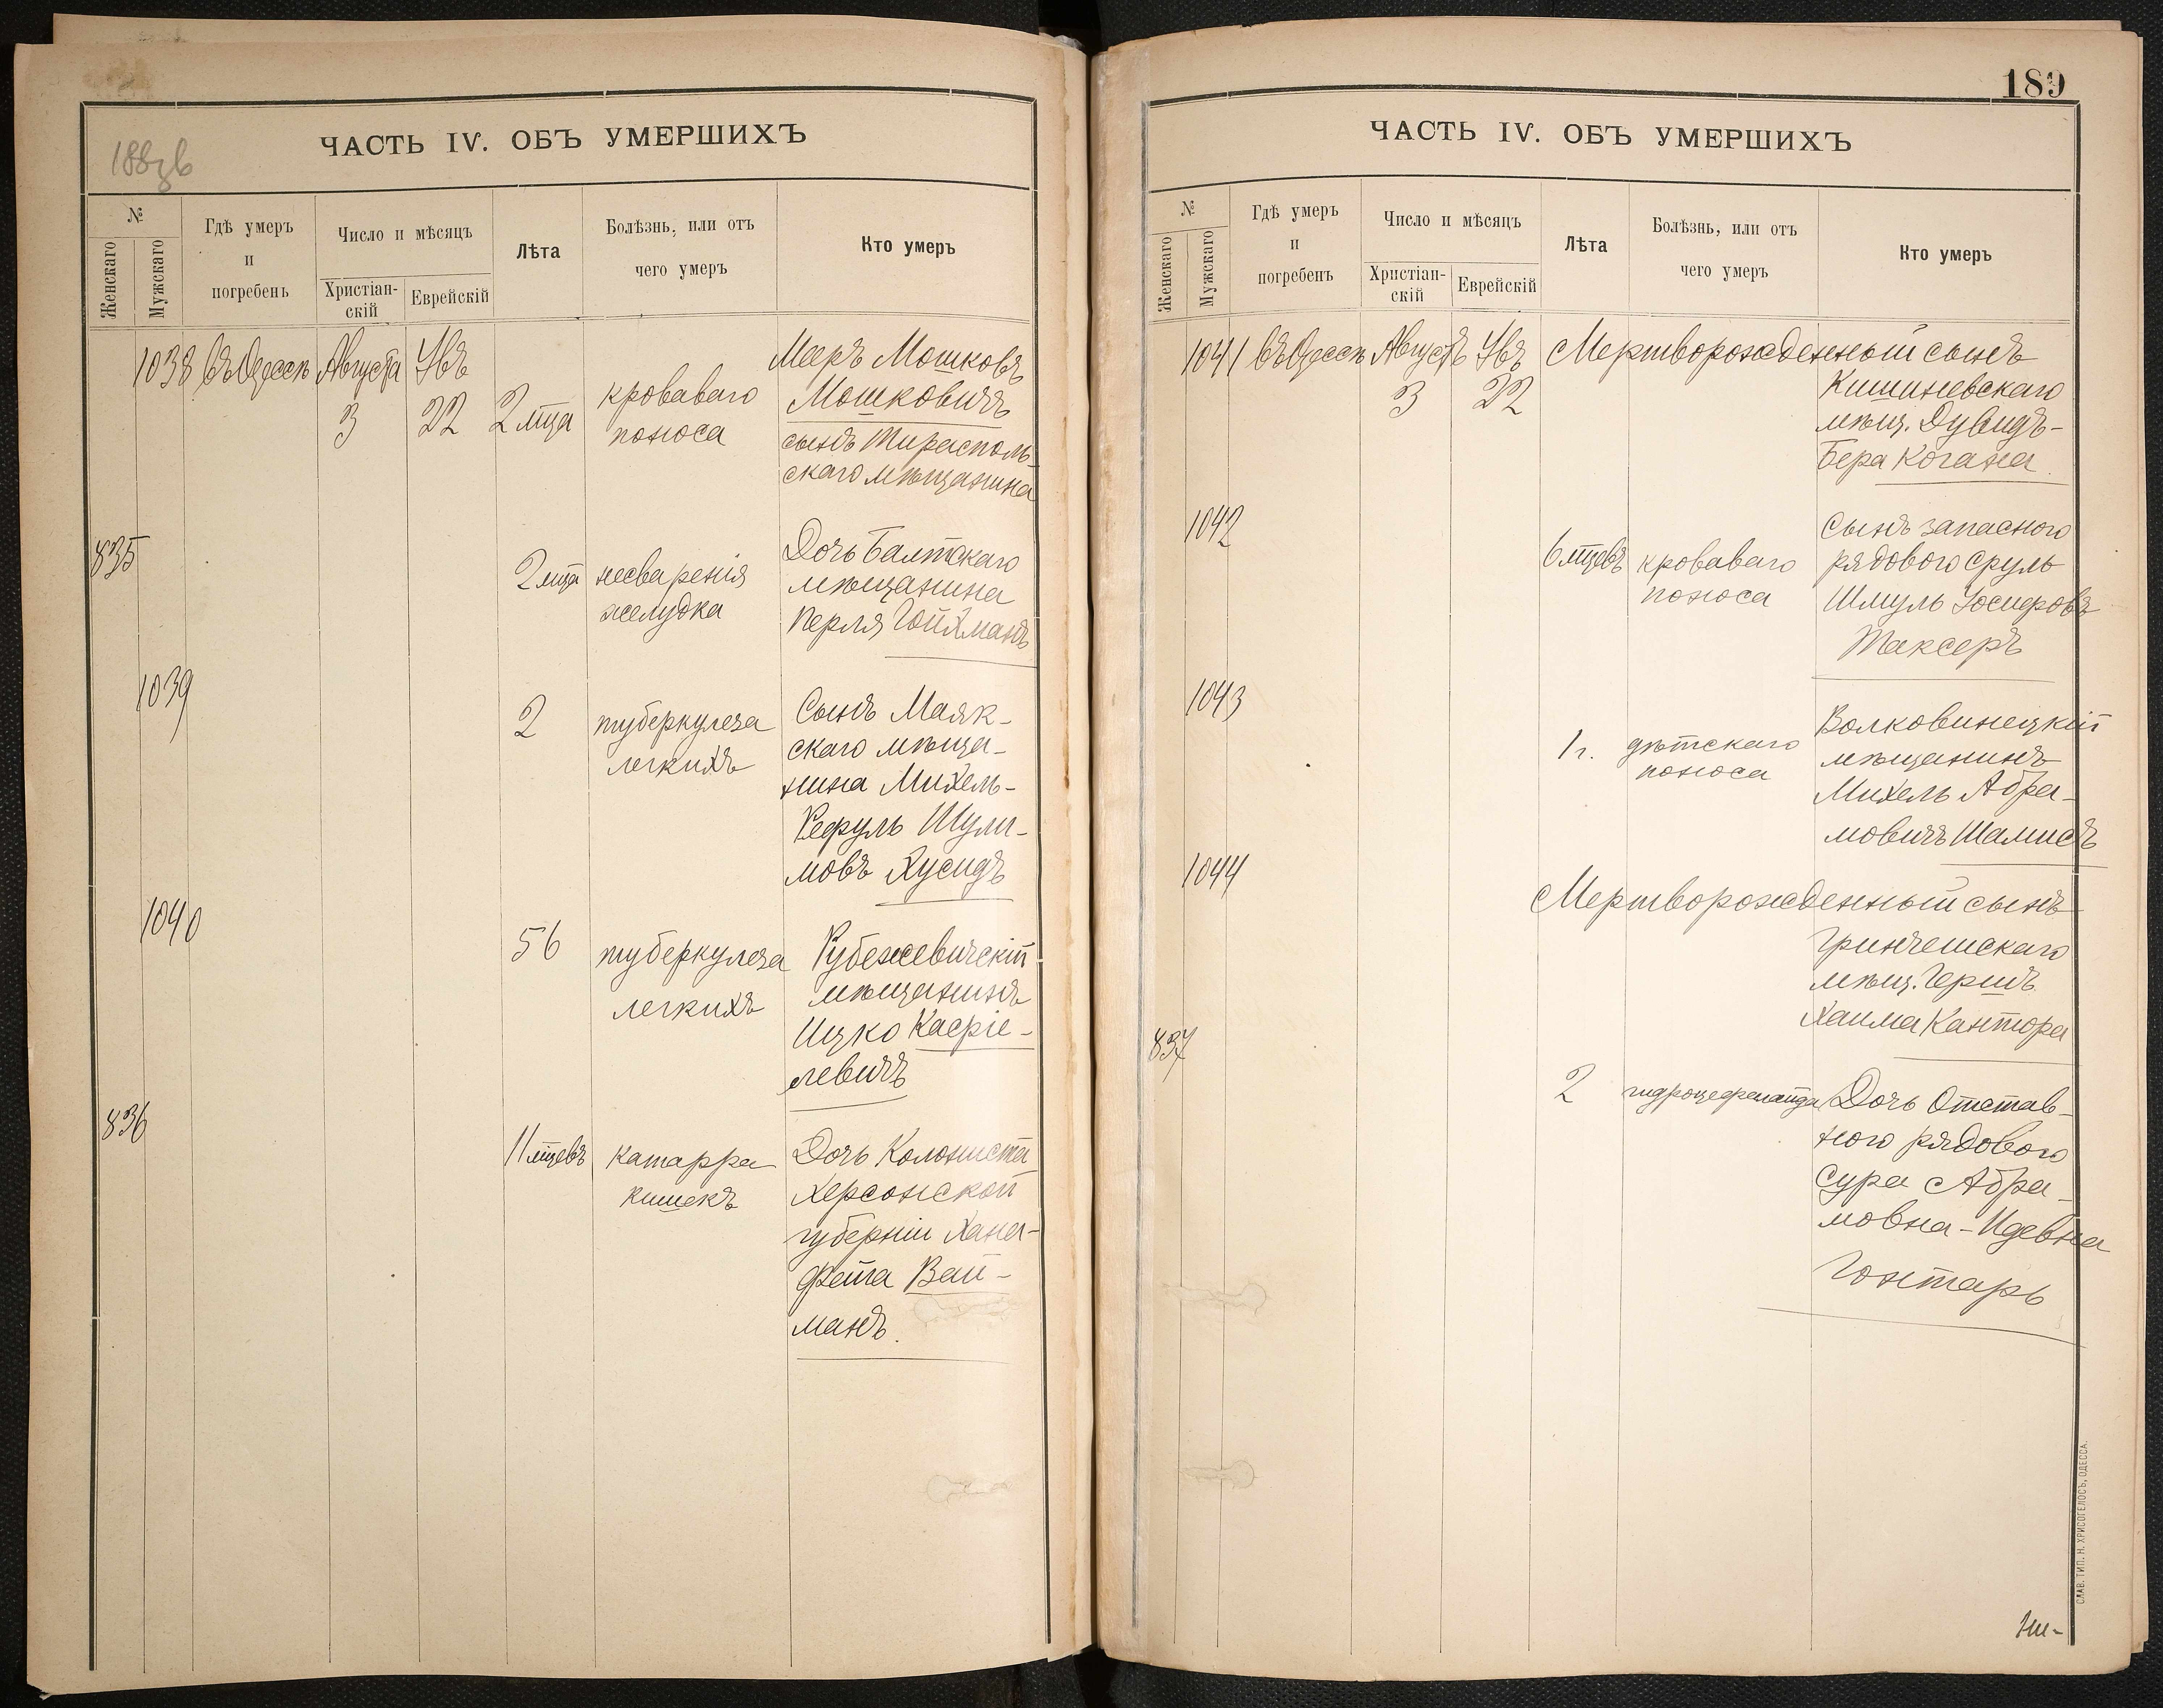 188 об
ЧАСТЬ IV. ОБЪ УМЕРШИХЪ
№
Женскаго
Мужскаго
Гдѣ умеръ
и
погребенъ
Число и мѣсяцъ
Христіан-
скій
Еврейскій
Лѣта
Болѣзнь, или отъ
чего умеръ
Кто умеръ
1038 Въ Одессѣ Августа Увъ
3 22 2 мца кроваваго
поноса
Мееръ Мошковъ
Мошковичъ
сынъ Тирасполь-
скаго мѣщанина
835
2 мца несваренія
желудка
Дочь Балтскаго
мѣщанина
Перля Гойхманъ
1039
2 туберкулеза
легкихъ
Сынъ Маяк-
скаго мѣща-
нина Михель-
Рефуль Шули-
мовъ Хусидъ
1040
56 туберкулеза
легкихъ
Рубежевичскій
мѣщанинъ
Ицко Касріе-
левичъ
836
11 мцевъ катарра
кишекъ
Дочь Колониста
Херсонской
губерніи Хана-
Фейга Вай-
манъ.
189
ЧАСТЬ IV. ОБЪ УМЕРШИХЪ
№
Женскаго
Мужскаго
Гдѣ умеръ
и
погребенъ
Число и мѣсяцъ
Христіан-
скій
Еврейскій
Лѣта
Болѣзнь, или отъ
чего умеръ
Кто умеръ
1041 Въ Одессѣ Августъ Увъ Мертворожденный сынъ
3 22
Кишиневскаго
мѣщ. Дувидъ-
Бера Когана.
1042
6 мцевъ кроваваго
поноса
Сынъ запасного
рядового Сруль
Шмуль Іосиеровъ
Таксеръ
1043
1 г. дѣтскаго
поноса
Волковинецкій
мѣщанинъ
Михель Абра-
мовичъ Шамисъ
1044
Мертворожденный сынъ
Гринчешскаго
мѣщ. Гершъ
Хаима Кантора
837
2
Дочь Отстав-
ного рядового
Сура Абра-
мовна-Идевна
Гонтарь
СЛАВ. ТИП. Н. ХРИСОГЕЛОСЪ, ОДЕССА.